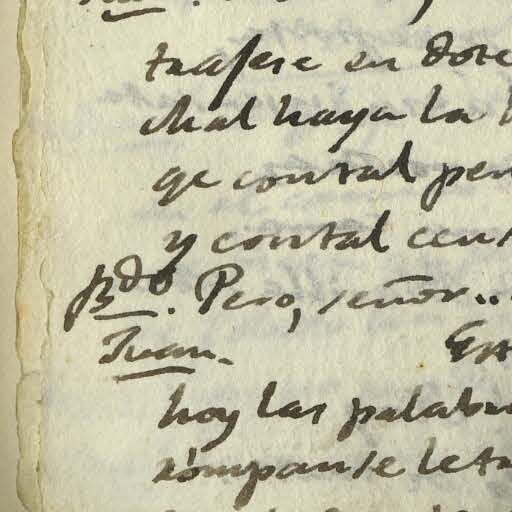 trajese en dote
Mal haya la
qe con tal pen
y con tal cens
Bdo. Pero, señor..
Juan.
hoy las palabr
rómpanse letr